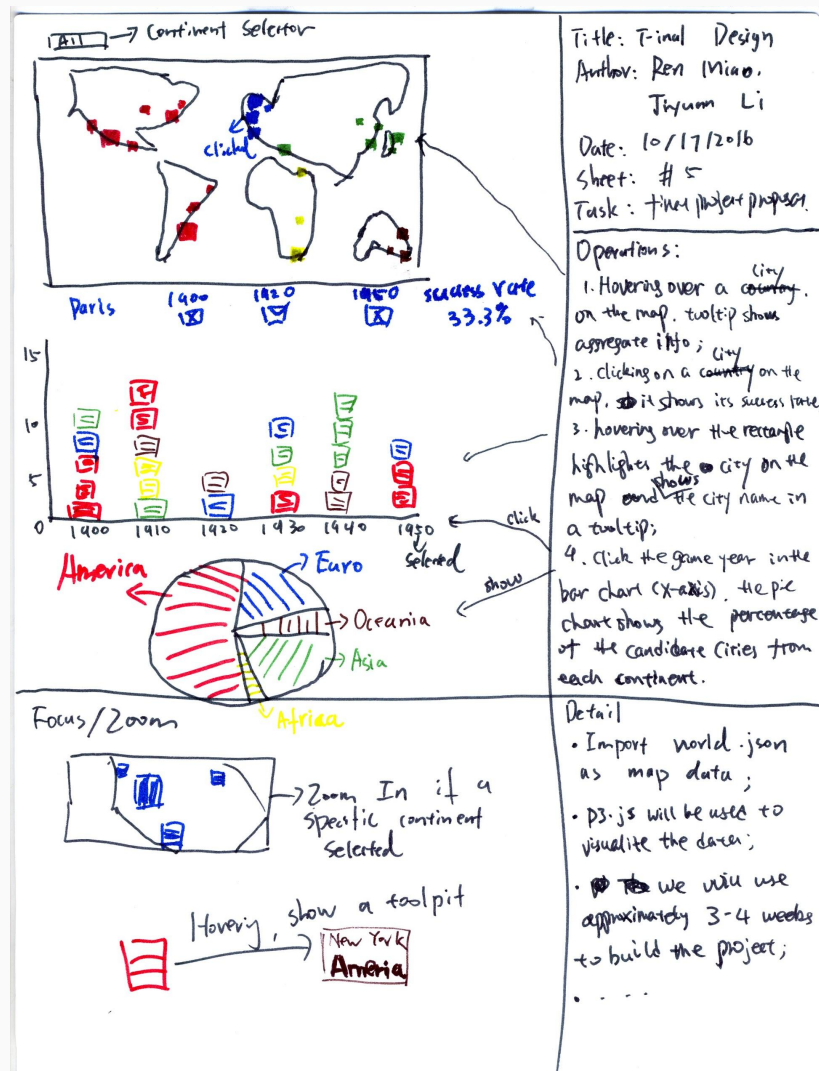 All → Continent Selector
clicked
Paris 1900 1920 1950 success rate
33.3%
15
10
5
0 1900 1910 1920 1930 1940 1950
selected
America
Euro
Oceania
Asia
Africa
click
show
Focus/Zoom
Zoom In if a
specific continent
selected
Hovering, show a toolpit
New York
Ameria
Title: Final Design
Author: Ren Miao,
Li
Date: 10/17/2016
Sheet: # 5
Task: final project proposal
Operations:
1. Hovering over a country city
on the map, tooltip shows
aggregate info;
2. Clicking on a country city on the
map, it shows its success rate
3. hovering over the rectangle
highlights the city on the
map and shows the city name in
a tooltip;
4. Click the game year in the
bar chart (X-axis), the pie
chart shows the percentage
of the candidate cities from
each continent.
Detail
• Import world.json
as map data;
• D3.js will be used to
visualize the data;
• we will use
approximately 3-4 weeks
to build the project;
• . . . .